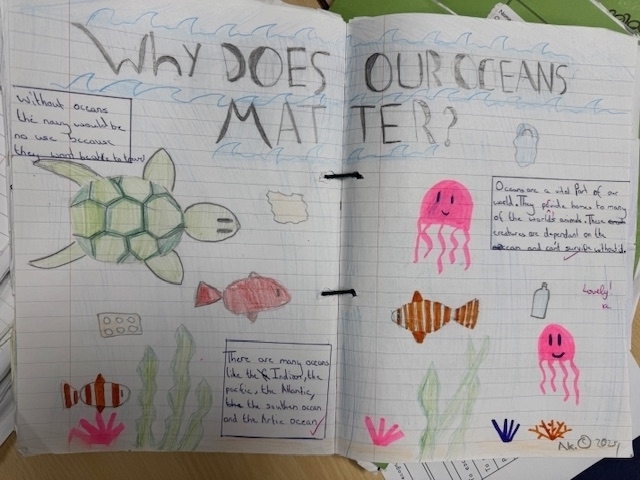 WHY DOES OUR OCEANS
MATTER?
Without oceans
the navy would be
no use because
they
Oceans are a vital Part of our
world. They provide homes to many
of the world's animals. These
creatures are dependant on the
ocean and can't survive without it.
Lovely!
There are many oceans
like the Indian, the
pacific, the Atlantic,
the southern ocean
and the Artic ocean
© 2024